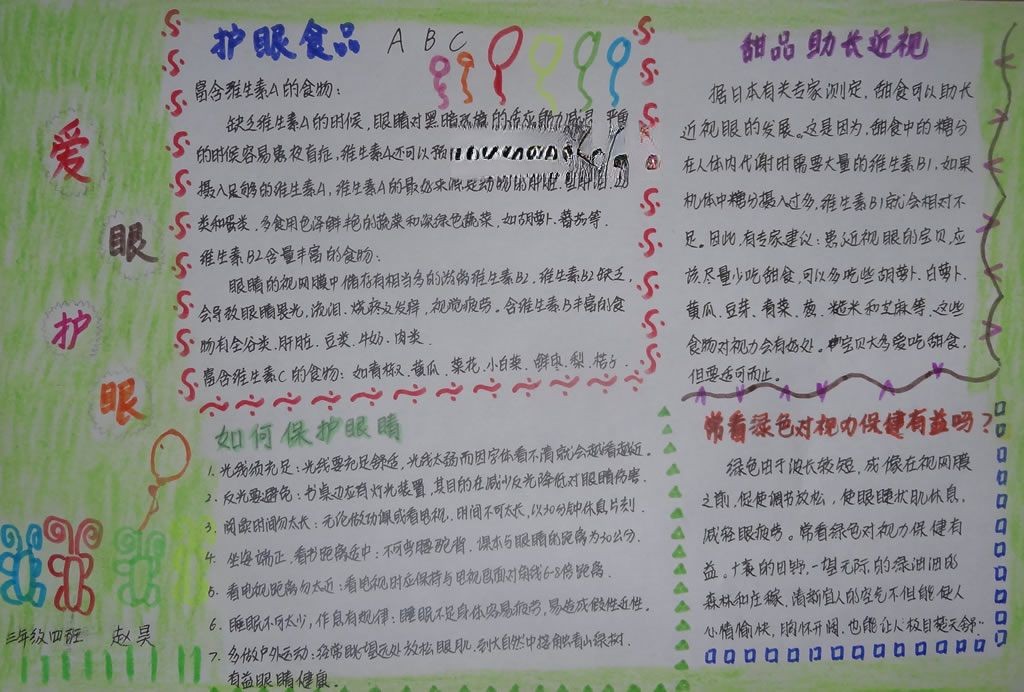 爱
眼
护
眼
三年级四班 赵昊
护眼食品 A B C
富含维生素A的食物：
缺乏维生素A的时候，眼睛对黑暗环境的适应能力减退，严重
的时候容易患夜盲症，维生素A还可以预
摄入足够的维生素A，维生素A的最好来源是动物的肝脏
类和蛋类，多食用色泽鲜艳的蔬菜和深绿色蔬菜，如胡萝卜、蕃茄等．
维生素B2含量丰富的食物：
眼睛的视网膜中储存有相当多的游离维生素B2，维生素B2缺乏，
会导致眼睛畏光，流泪，烧疼及发痒，视觉疲劳。含维生素B丰富的食
物有全谷类．肝脏．豆类．牛奶．肉类．
富含维生素C的食物：如青椒．黄瓜．菜花．小白菜．鲜枣．梨．桔子．
如何保护眼睛
1．光线须充足：光线要充足舒适，光线太弱而因字体看不清就会越看越近．
2．反光要避免：书桌边应有灯光装置，其目的在减少反光降低对眼睛伤害．
3．阅读时间勿太长：无论做功课或看电视，时间不可太长，以30分钟休息片刻．
4．坐姿端正，看书距离适中：不可弯腰驼背，课本与眼睛的距离为30公分．
5．看电视距离勿太近：看电视时应保持与电视画面对角线6-8倍距离．
6．睡眠不可太少，作息有规律：睡眠不足身体容易疲劳，易造成假性近性．
7．多做户外运动：经常眺望远处放松眼肌，到大自然中接触看小绿树．
有益眼睛健康．
甜品助长近视
据日本有关专家测定，甜食可以助长
近视眼的发展。这是因为，甜食中的糖分
在人体内代谢时需要大量的维生素B1，如果
机体中糖分摄入过多，维生素B1就会相对不
足。因此，有专家建议：患近视眼的宝贝，应
该尽量少吃甜食，可以多吃些胡萝卜．白萝卜．
黄瓜．豆芽．青菜．葱．糙米和芝麻等，这些
食物对视力会有好处。宝贝大多爱吃甜食，
但要适可而止。
常看绿色对视力保健有益吗？
绿色由于波长较短，成像在视网膜
之前，促使调节放松，使眼睫状肌休息，
减轻眼疲劳。常看绿色对视力保健有
益。广袤的田野，一望无际的绿油油的
森林和庄稼，清新宜人的空气不但能使人
心情愉快，胸怀开阔，也能让人极目楚天舒．